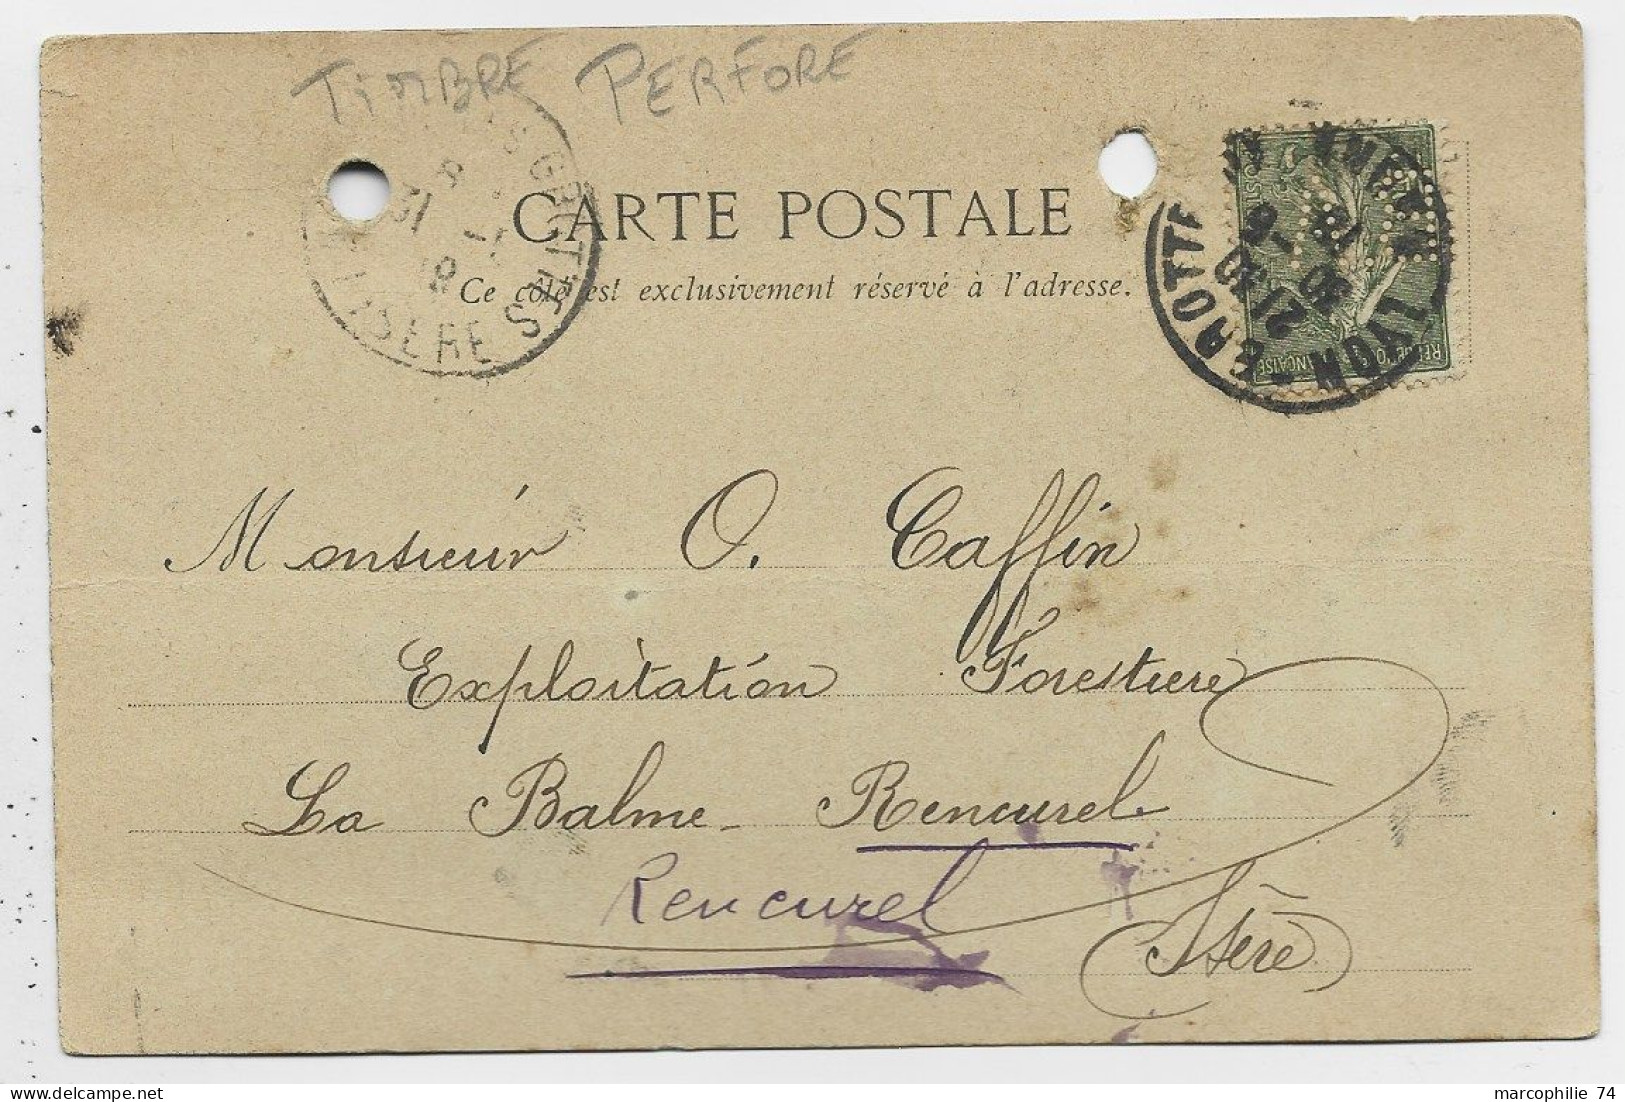 TIMBRE PERFORE
CARTE POSTALE
Ce côté est exclusivement réservé à l'adresse.
ISERE
LYON
GROTTE
21 30
RÉPUBLIQUE FRANÇAISE
Monsieur O. Caffin
Exploitation Forestière
La Balme - Rencurel
Rencurel
Isère
marcophilie 74